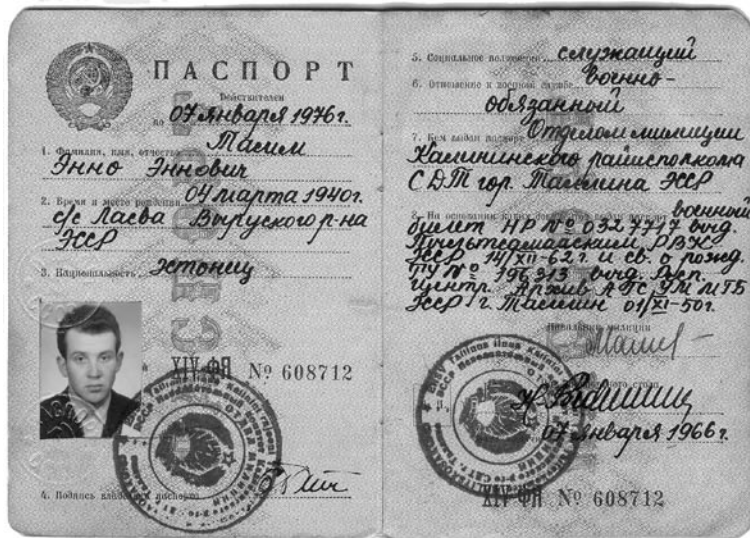 ПАСПОРТ
Действителен
по 07 января 1976г.
1. Фамилия, имя, отчество Тамм
Энно Эннович
2. Время и место рождения 04 марта 1940г.
с/с Лаева Выруского р-на
ЭССР
3. Национальность эстонец
XIV-ФЯ № 608712
4. Подпись владельца паспорта
5. Социальное положение служащий
6. Отношение к военной службе военно-
обязанной
7. Кем выдан паспорт Отделом милиции
Калининского райисполкома
СДТ гор. Таллина ЭССР
8. На основании каких документов выдан паспорт военной
билет НР № 0327717 выд.
РВК
ЭССР 14/XII-62г. и св. о рожд.
ТУ № 196313 выд. Респ.
Центр. Архив АГС УМ МГБ
ЭССР г. Таллин 01/XI-50г.
Начальник милиции
07 января 1966г.
XIV-ФЯ № 608712